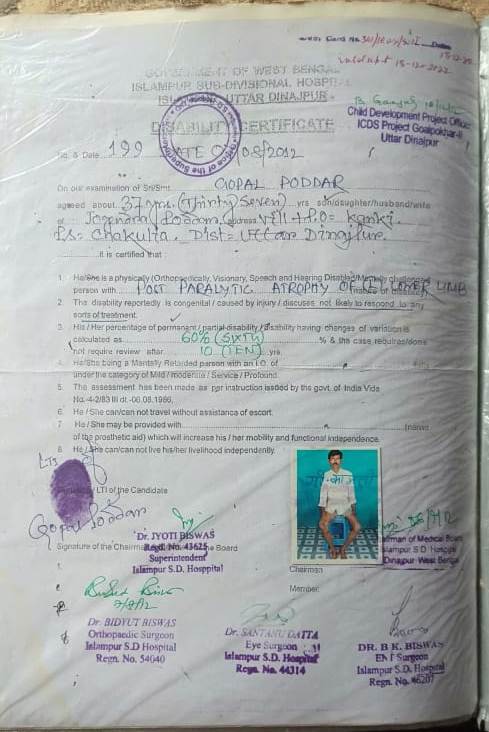 15-12-2022
GOVERNMENT OF WEST BENGAL
ISLAMPUR SUB-DIVISIONAL HOSPITAL
UTTAR DINAJPUR
Child Development Project Officer
ICDS Project Goalpokhar-II
Uttar Dinajpur
DISABILITY CERTIFICATE
No. & Date 199 DATE 08/2012
Office of the Superintendent
On our examination of Sri/Smt. GOPAL PODDAR
agreed about 37 yrs. (Thirty Seven) yrs son/daughter/husband/wife
of Jogendra Poddar, address Vill + P.O = Kanki.
P.S = Chakulia. Dist = Uttar Dinajpur.
it is certified that :
1. He/She is a physically (Orthopaedically, Visionary, Speech and Hearing Disabled/Mentally challenged
person with POST PARALYTIC ATROPHY OF LOWER LIMB
2. The disability reportedly is congenital / caused by injury / discuses not likely to respond to any
sorts of treatment.
3. His / Her percentage of permanent / partial disability / disability having changes of variation is
calculated as 60% (SIXTY) % & the case requires/does
not require review after 10 (TEN) yrs.
4. He/She being a Mentally Retarded person with an I.Q. of
under the category of Mild / moderate / Service / Profound.
5. The assessment has been made as per instruction issued by the govt. of India Vide
No.-4-2/83 III dt.-06.08.1986.
6. He / She can/can not travel without assistance of escort.
7. He / She may be provided with (name
of the prosthetic aid) which will increase his / her mobility and functional independence.
8. He / She can/can not live his/her livelihood independently.
LTI of
LTI of the Candidate
Gopal Poddar
Signature of the Chairman the Board
Dr. JYOTI BISWAS
Regd. No. 43625
Superintendent
Islampur S.D. Hosppital
Chairman of Medical Board
Islampur S D Hospital
Dinajpur West Bengal
1.
Chairman
Member
7/8/12
Dr. BIDYUT BISWAS
Orthopaedic Surgeon
Islampur S.D Hospital
Regn. No. 54040
Dr. SANTANU DATTA
Eye Surgeon
Islampur S.D. Hospital
Regn. No. 44314
DR. B K. BISWAS
ENT Surgeon
Islampur S.D. Hospital
Regn. No. 46207